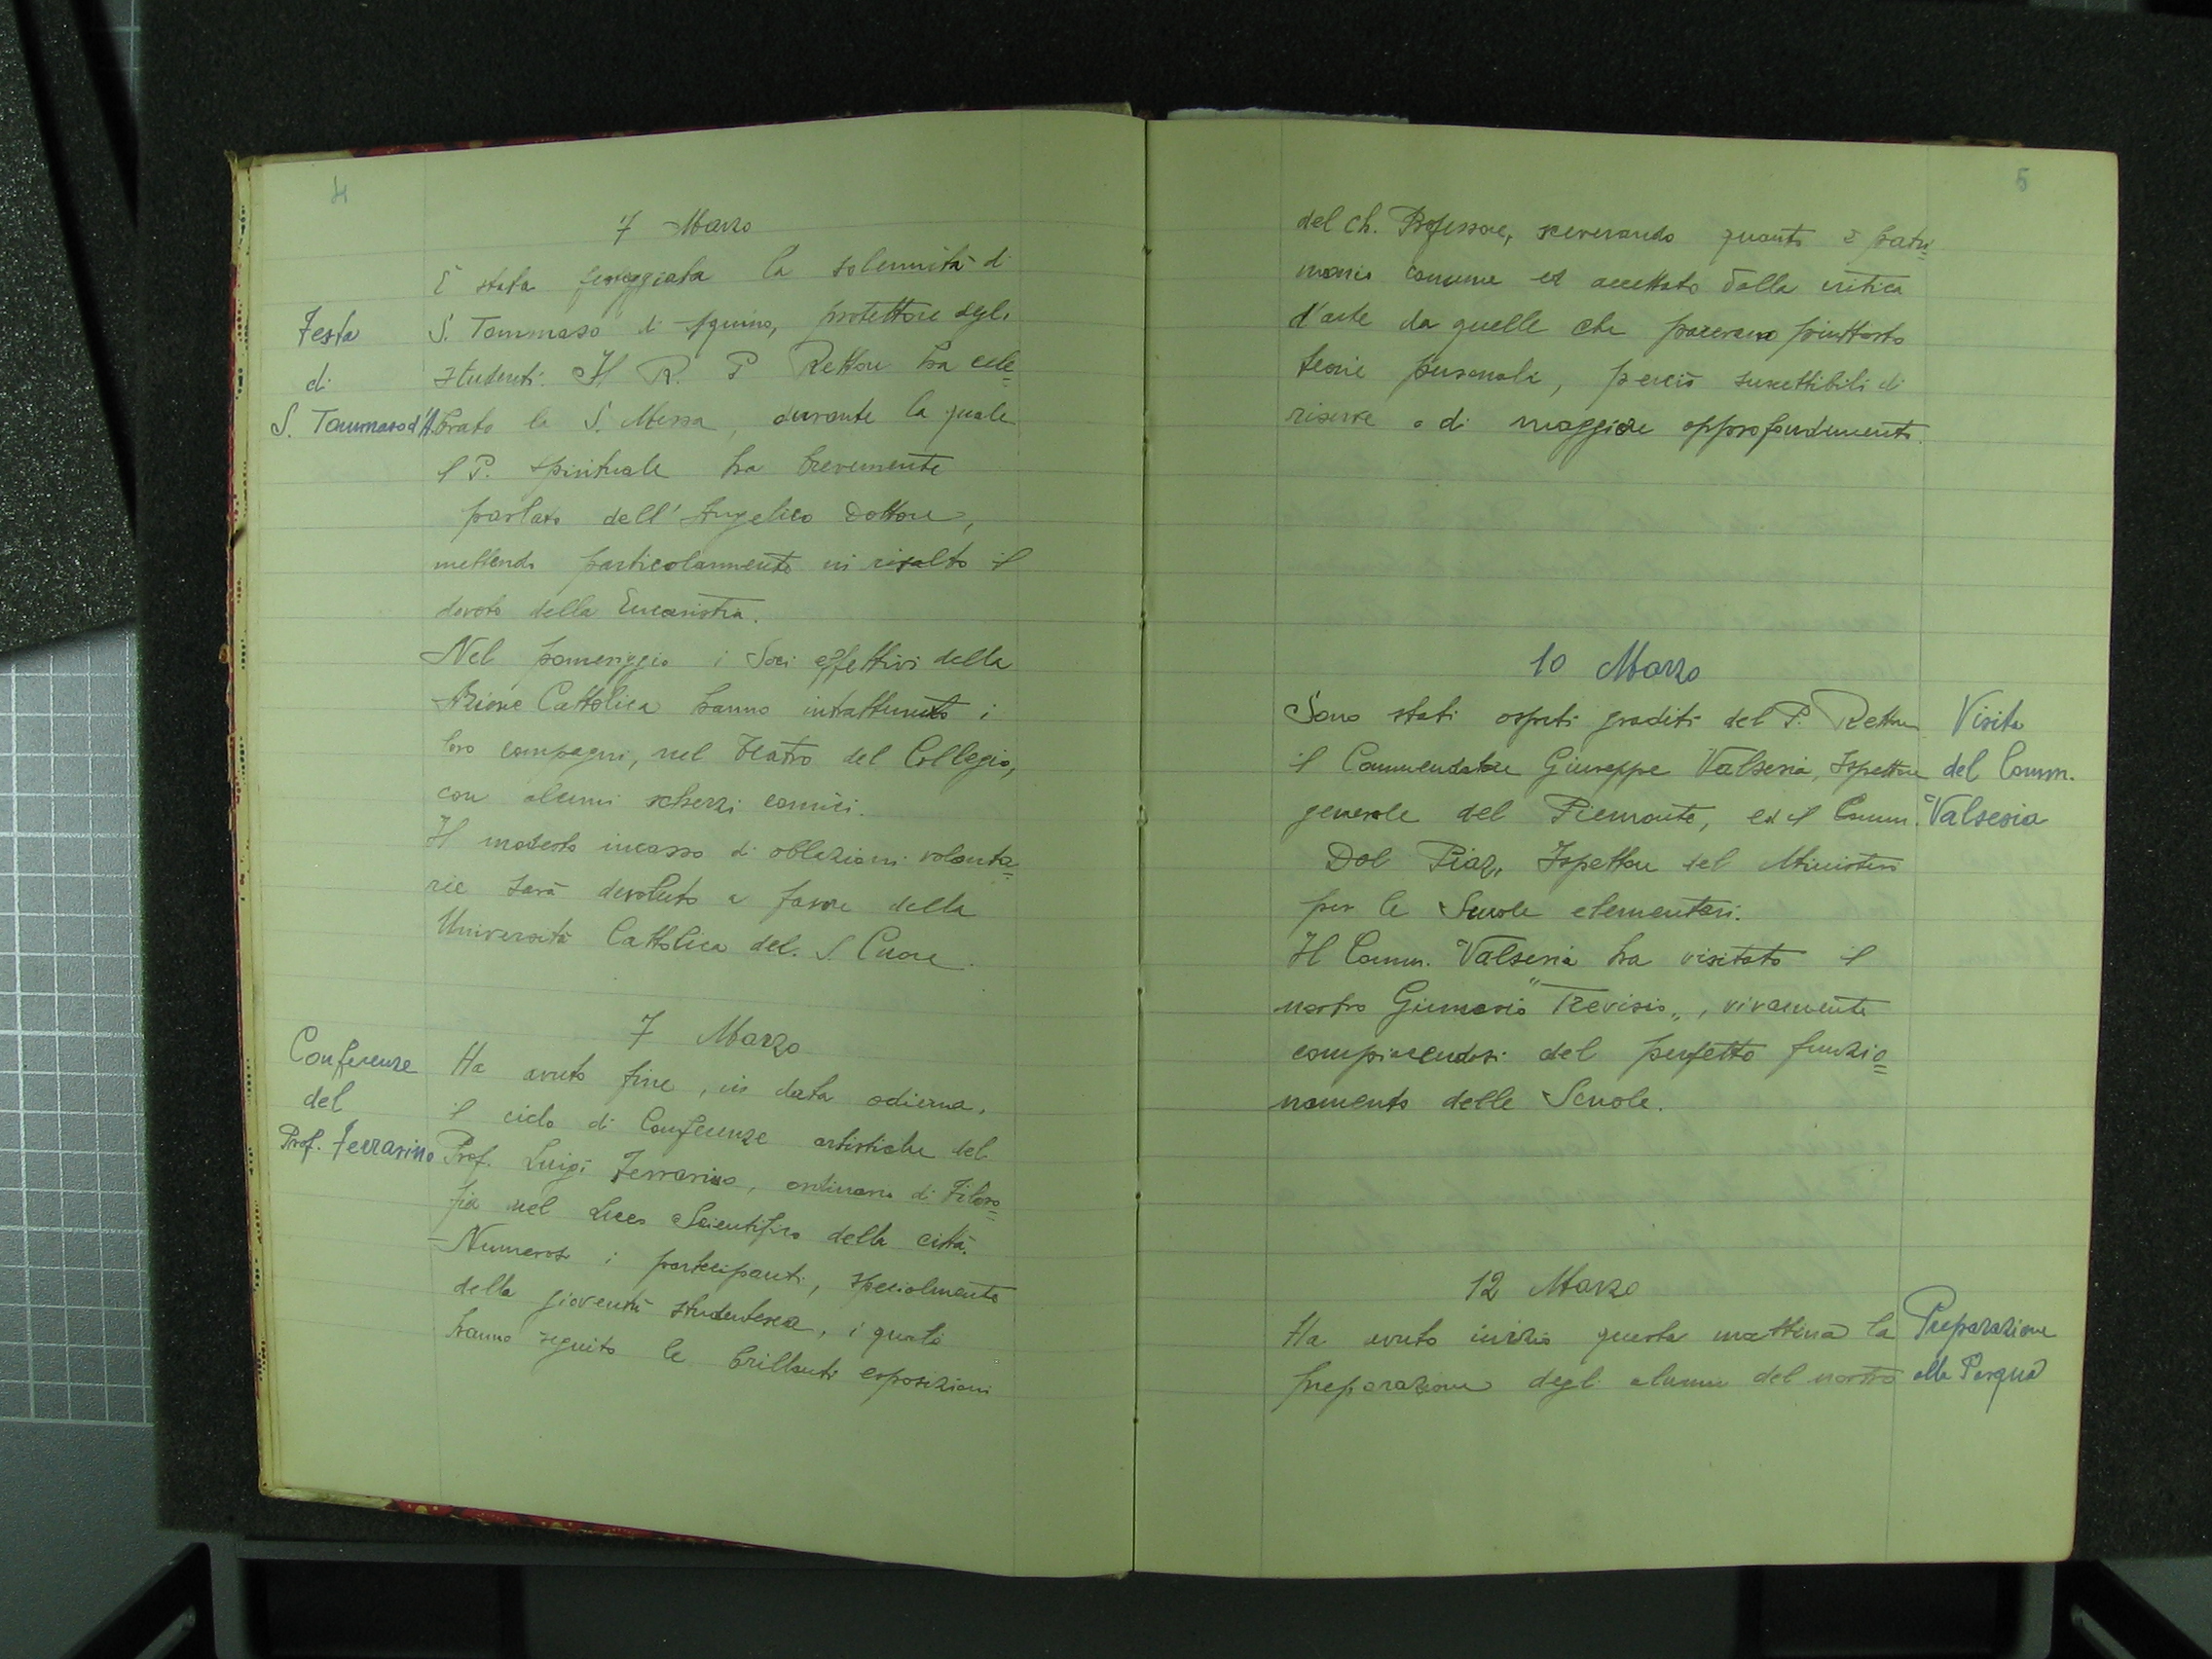 4
7 Marzo
È stata festeggiata la solennità di
Festa
di
S. Tommaso d'A.
S. Tommaso di Aquino, protettore degli
studenti. Il R. P. Rettore ha cele=
brato la S. Messa, durante la quale
il P. Spirituale ha brevemente
parlato dell'Angelico Dottore,
mettendo particolarmente in risalto il
devoto della Eucaristia.
Nel pomeriggio i Soci effettivi della
Azione Cattolica hanno intrattenuto i
loro compagni, nel teatro del Collegio,
con alcuni scherzi comici.
Il modesto incasso di oblazioni volonta=
rie sarà devoluto a favore della
Università Cattolica del S. Cuore.
7 Marzo
Conferenze
del
Prof. Ferrarino
Ha avuto fine, in data odierna,
il ciclo di Conferenze artistiche del
Prof. Luigi Ferrarino, ordinario di Filoso=
fia nel Liceo Scientifico della città.
Numerosi i partecipanti, specialmente
della gioventù studentesca, i quali
hanno seguito le brillanti esposizioni
5
del Ch. Professore, sceverando quanto è patri=
monio comune ed accettato dalla critica
d'arte da quelle che parevano piuttosto
teorie personali, perciò suscettibili di
riserve o di maggiore approfondimento.
10 Marzo
Sono stati ospiti graditi del P. Rettore
il Commendatore Giuseppe Valsesia, Ispettore
generale del Piemonte, ed il Comm.
Dal Piaz, Ispettore del Ministero
per le Scuole elementari.
Visita
del Comm.
Valsesia
Il Comm. Valsesia ha visitato il
nostro Ginnasio "Trevisio", vivamente
compiacendosi del perfetto funzio=
namento delle Scuole.
12 Marzo
Ha avuto inizio questa mattina la
preparazione degli alunni del nostro
Preparazione
alla Pasqua